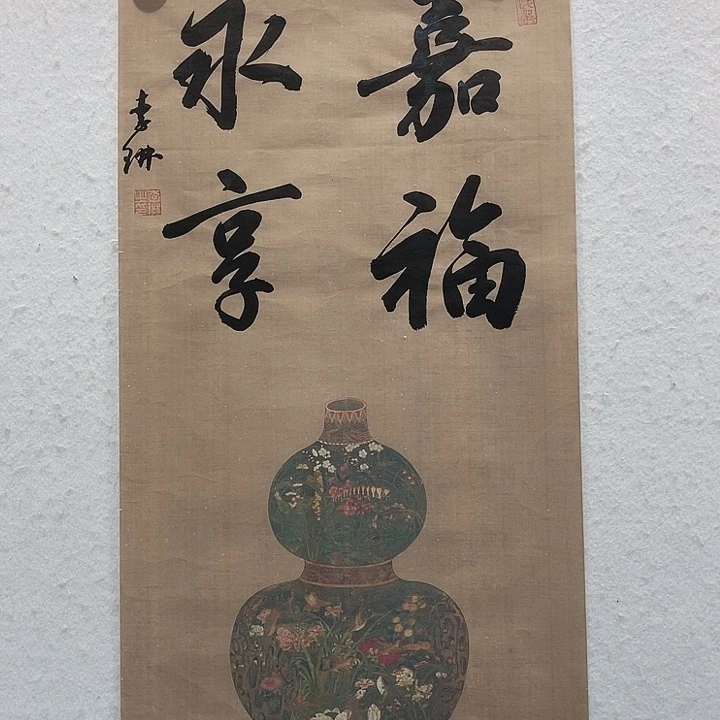 嘉福
永享
李琳